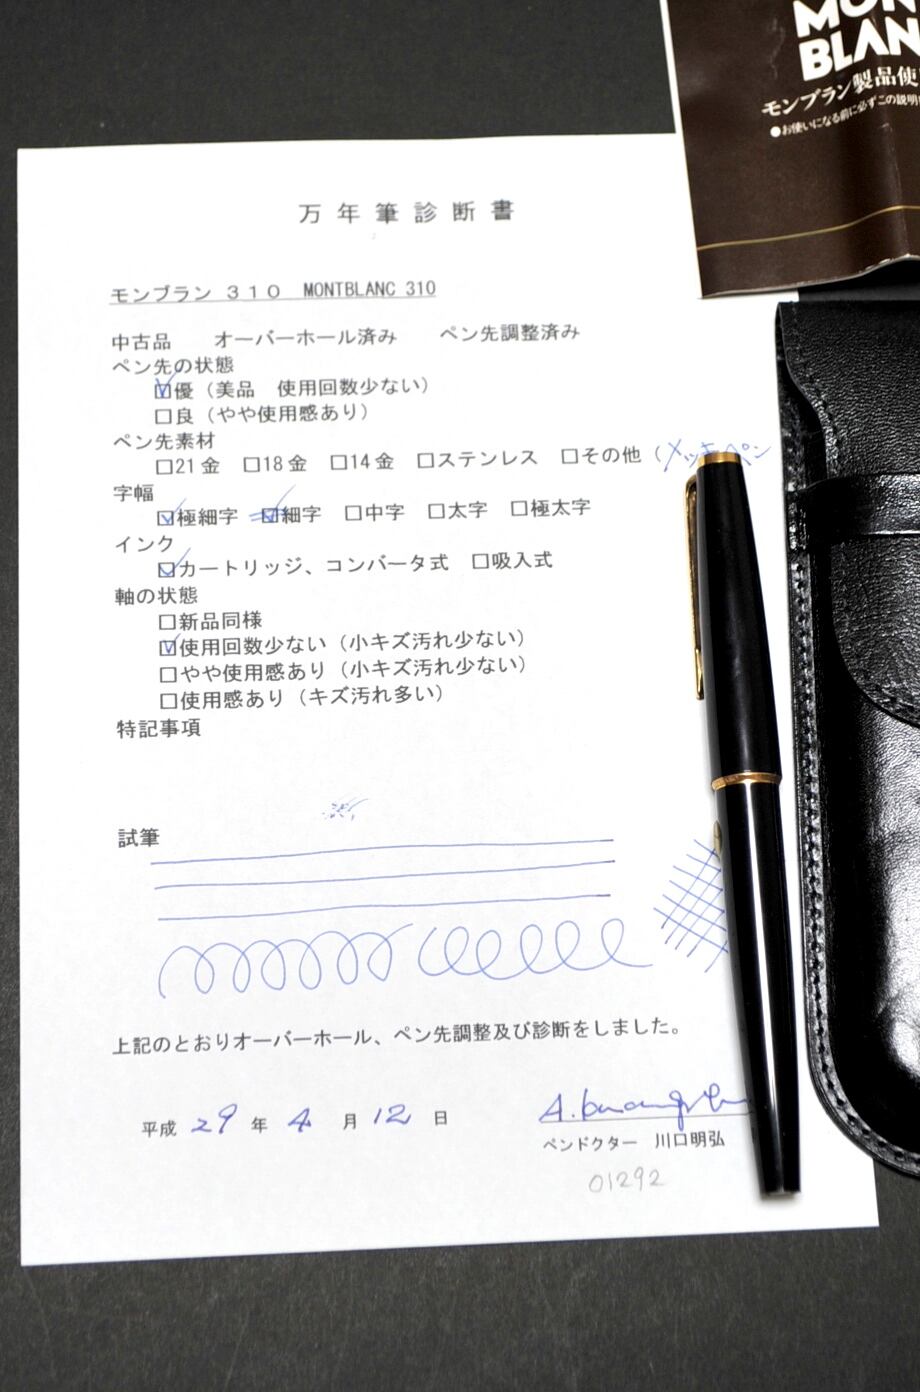 MON
BLAN
モンブラン製品使
●お使いになる前に必ずこの説明
万年筆診断書
モンブラン ３１０ MONTBLANC 310
中古品 オーバーホール済み ペン先調整済み
ペン先の状態
☑優（美品 使用回数少ない）
□良（やや使用感あり）
ペン先素材
□21金 □18金 □14金 □ステンレス □その他（メッキペン
字幅
☑極細字 ☑細字 □中字 □太字 □極太字
インク
☑カートリッジ、コンバータ式 □吸入式
軸の状態
□新品同様
☑使用回数少ない（小キズ汚れ少ない）
□やや使用感あり（小キズ汚れ少ない）
□使用感あり（キズ汚れ多い）
特記事項
試筆
上記のとおりオーバーホール、ペン先調整及び診断をしました。
平成 29 年 4 月 12 日
ペンドクター 川口明弘
01292